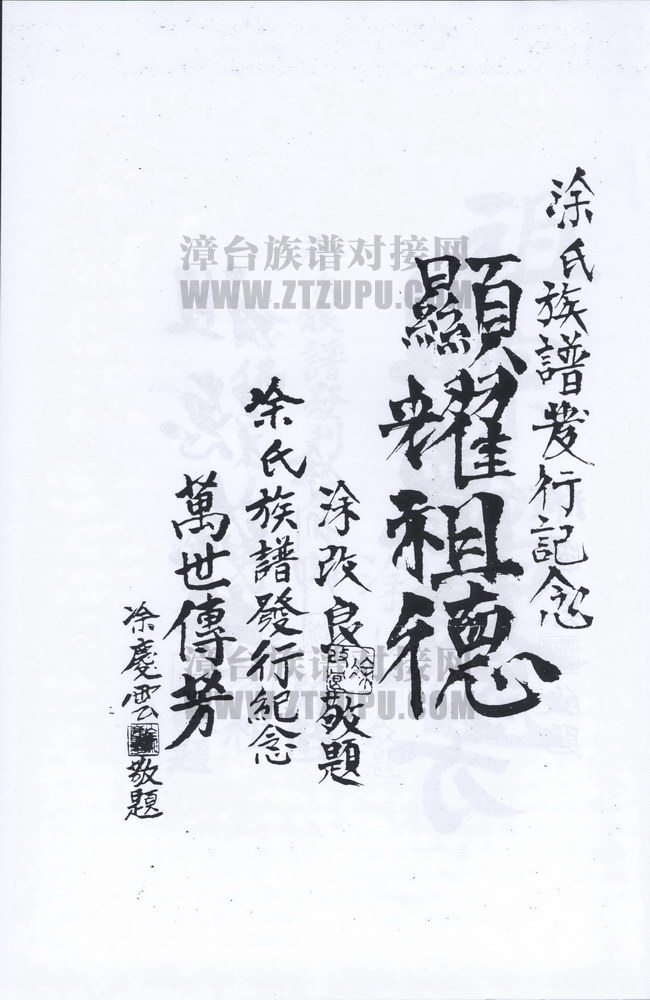 涂氏族譜發行記念
顯耀祖德
涂改良敬題
涂氏族譜發行紀念
萬世傳芳
涂慶雲敬題
漳台族谱对接网
WWW.ZTZUPU.COM
漳台族谱对接网
WWW.ZTZUPU.COM